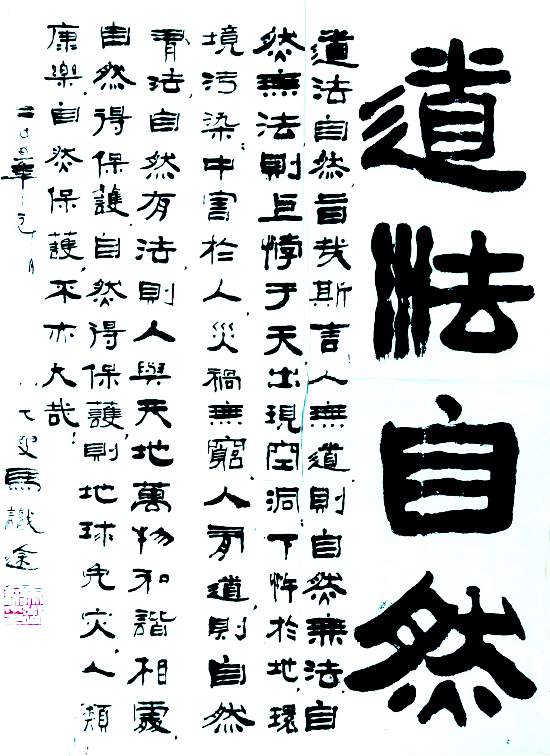 道法自然
道法自然旨哉斯言人無道則自然無法自
然無法則上悖于天出現空洞下忤於地環
境污染中害於人災禍無窮人有道則自然
有法自然有法則人與天地萬物和諧相處
自然得保護自然得保護則地球免灾人類
康樂自然保護不亦大哉！
年元月 叟馬識途